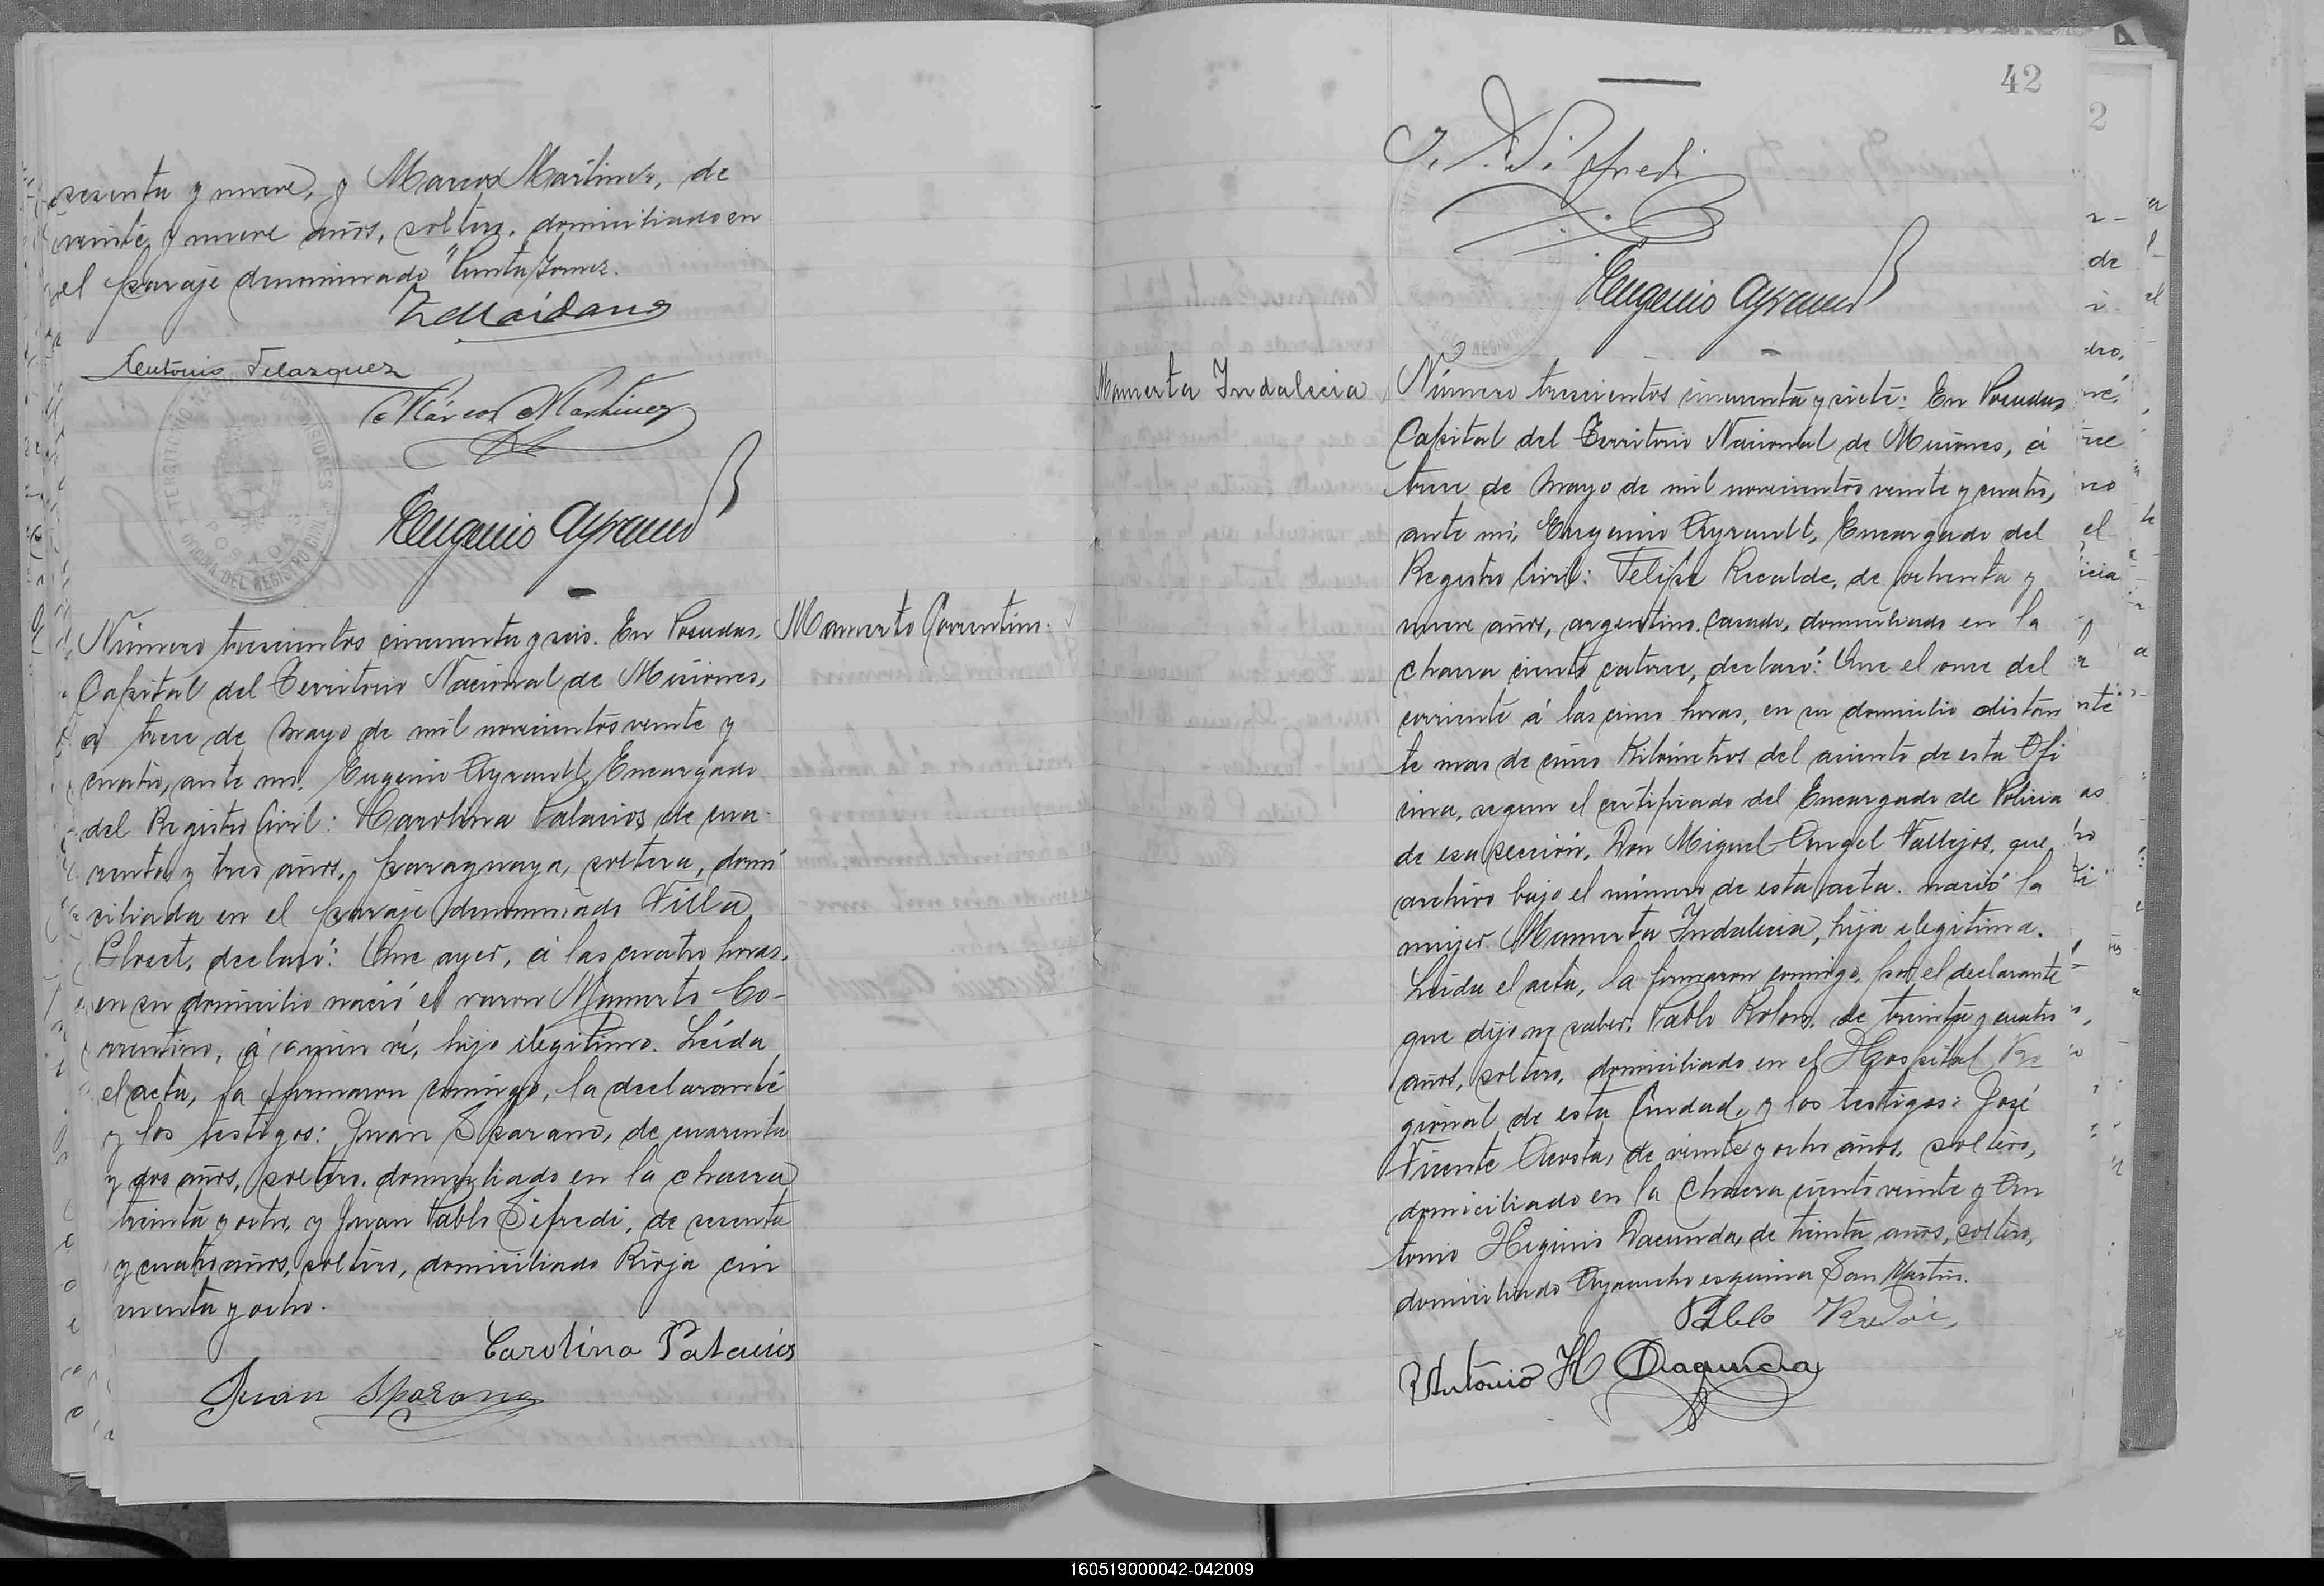 sesenta y nueve, y Marcos Martinez, de
veinte y nueve años, soltero, domiciliado en
el paraje denominado "Punta Gomez.
Antonio Velazquez
Márcos Martinez
TERRITORIO NACIONAL DE MISIONES
POSADAS
OFICINA DEL REGISTRO CIVIL
Eugenio Ayrault
Mamerto Correntino.
Número trescientos cincuenta y seis. En Posadas,
Capital del Territorio Nacional de Misiones,
á trece de Mayo de mil novecientos veinte y
cuatro, ante mi, Eugenio Ayrault, Encargado
del Registro Civil: Carolina Palacios, de cua-
renta y tres años, paraguaya, soltera, domi
ciliada en el paraje denominado Villa
Blosset, declaró: Que ayer, á las cuatro horas,
en su domicilio nació el varon Mamerto Co-
rrentino, á quien vi, hijo ilegitimo. Leída
el acta, la firmaron conmigo, la declarante
y los testigos: Juan Sparano, de cuarenta
y dos años, soltero, domiciliado en la chacra
treinta y ocho, y Juan Pablo Sifredi, de sesenta
y cuatro años, soltero, domiciliado Rioja cin
cuenta y ocho.
Carolina Palacios
Juan Sparano
42
J. P. Sifredi
Eugenio Ayrault
Mamerta Indalecia
Número trescientos cincuenta y siete: En Posadas,
Capital del Territorio Nacional de Misiones, á
trece de Mayo de mil novecientos veinte y cuatro,
ante mi, Eugenio Ayrault, Encargado del
Registro Civil: Felipe Recalde, de ochenta y
nueve años, argentino, casado, domiciliado en la
chacra ciento catorce, declaró: Que el once del
corriente á las cinco horas, en su domicilio distan
te mas de cinco Kilómetros del asiento de esta Ofi
cina, segun el certificado del Encargado de Policia
de esa sección, Don Miguel Angel Vallejos, que
archivo bajo el número de esta acta, nació la
mujer Mamerta Indalecia, hija ilegitima.
Leída el acta, la firmaron conmigo, por el declarante
que dijo no saber, Pablo Rolon, de treinta y cuatro
años, soltero, domiciliado en el Hospital Re
gional de esta Ciudad, y los testigos: José
Vicente Acosta, de veinte y ocho años, soltero,
domiciliado en la Chacra ciento veinte y An
tonio Higinio Dacunda, de treinta años, soltero,
domiciliado Ayacucho esquina San Martin.
Pablo
Antonio H Dacunda
160519000042-042009